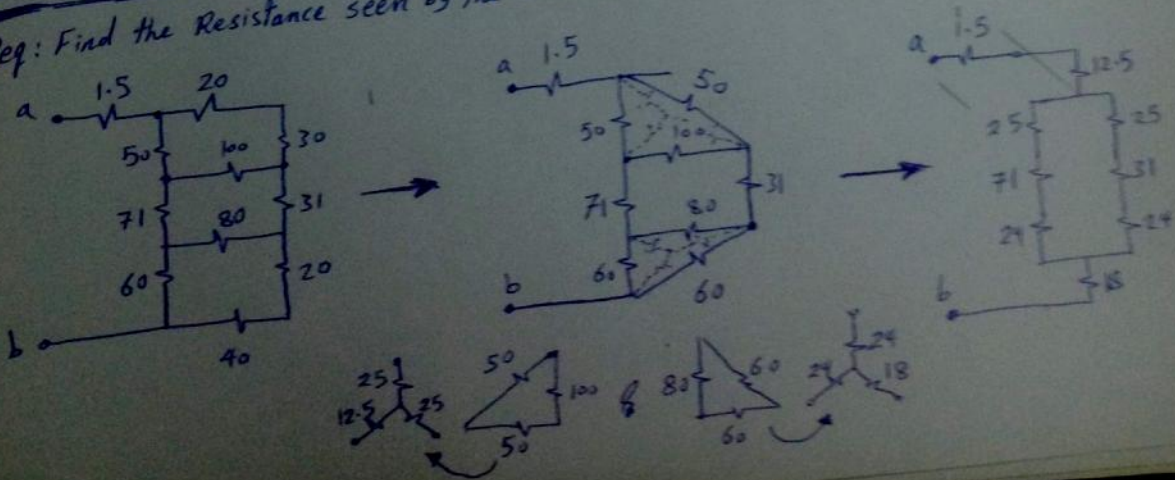 eq: Find the Resistance seen by
a 1.5 20
50 100 30
71 80 31
60 20
b 40
a 1.5 50
50 100
71 80 31
60 60
b
a 1.5 12.5
25 25
71 31
24 24
b 18
25
12.5 25
50 100
50
&
80 60
60
24
24 18